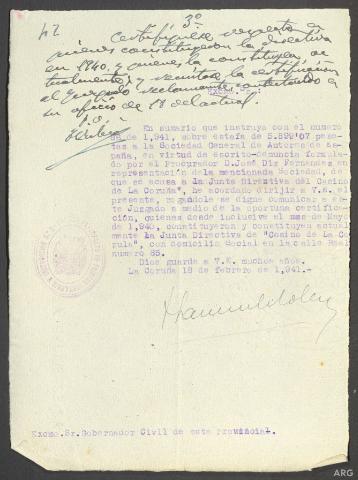 24
3º
Certifíquese respecto a
quienes constituyeron la directiva
en 1940, y quienes la constituyen ac
tualmente, y remítase la certificación
al Juzgado reclamante contestando a
su oficio de 18 del actual.
Excmo. Sr.:
En sumario que instruyo con el numero
de 1,941, sobre estafa de 5.899'07 pese
tas a la Sociedad General de Autores de Es
paña, en virtud de escrito-denuncia formulado
por el Procurador D.José Diz Fernandez en
representación de la mencionada Sociedad, de
que se acusa a la Junta Directiva del Casino
de La Coruña", he acordado dirijir a V.E. el
presente, rogandole se digne comunicar a es
te Juzgado a medio de la oportuna certifica
ción, quienes desde inclusive el mes de Mayo
de 1,940, constituyeron y constituyen actual
mente la Junta Directiva de "Casino de La Co
ruña", con domicilio Social en la calle Real
numero 85.
Dios guarde a V.E. muchos años.
La Coruña 18 de febrero de 1,941.-
Excmo.Sr.Gobernador Civil de esta Provincia.
ARG